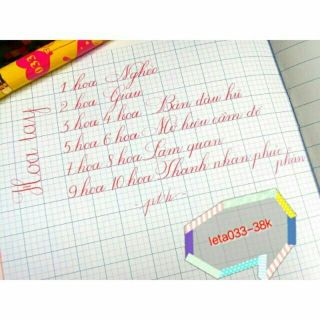 Hoa tay
1 hoa Nghèo
2 hoa Giàu
3 hoa 4 hoa Bán đậu hũ
5 hoa 6 hoa Mở hiệu cầm đồ
7 hoa 8 hoa Làm quan
9 hoa 10 hoa Thanh nhàn phúc phận
leta033-38k
033